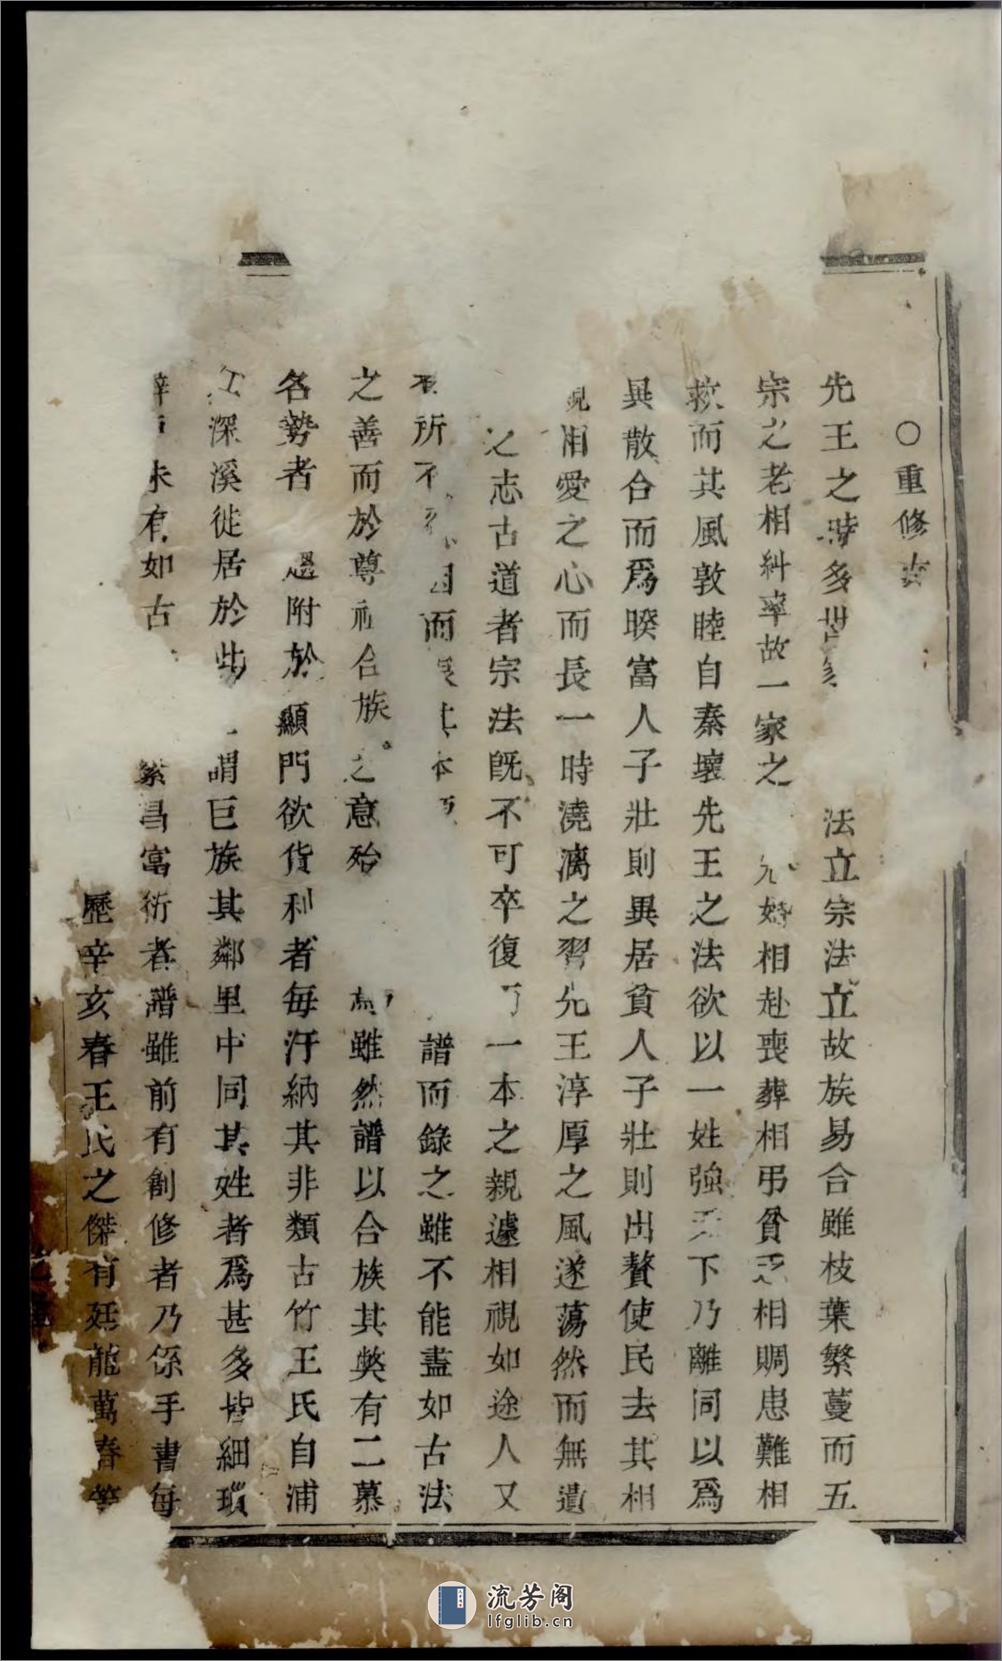 〇重修
先王之時多 法立宗法立故族易合雖枝葉繁蔓而五
宗之老相糾率故一家之 婚相赴喪葬相弔貧 相賙患難相
救而其風敦睦自秦壞先王之法欲以一姓強天下乃離同以爲
異散合而爲睽富人子壯則異居貧人子壯則出贅使民去其相
親相愛之心而長一時澆漓之習先王淳厚之風遂蕩然而無遺
之志古道者宗法旣不可卒復 一本之親遽相視如途人又
所不 因而 其本 譜而錄之雖不能盡如古法
之善而於尊祖合族之意殆 雖然譜以合族其獘有二慕
名勢者 附於顯門欲貨利者每汙納其非類古竹王氏自浦
深溪徙居於此 謂巨族其鄰里中同其姓者爲甚多皆細瑣
未有如古 繁昌富衍者譜雖前有創修者乃係手書每
歷辛亥春王氏之傑有廷龍萬春等
流芳阁
lfglib.cn